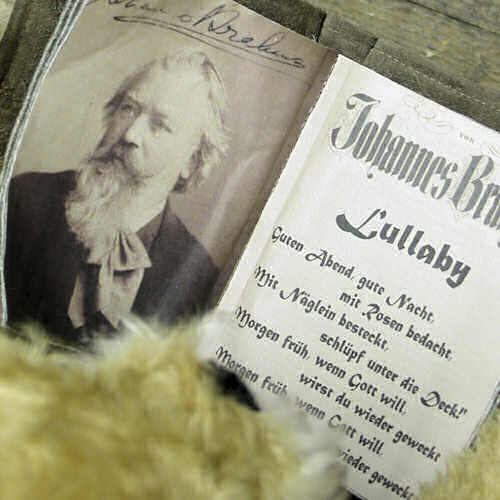 Brahms
von
Johannes
Lullaby
Guten Abend, gute Nacht,
mit Rosen bedacht,
Mit Näglein besteckt,
schlüpf unter die Deck!"
Morgen früh, wenn Gott will,
wirst du wieder geweckt
Morgen früh, wenn Gott will,
wieder geweckt